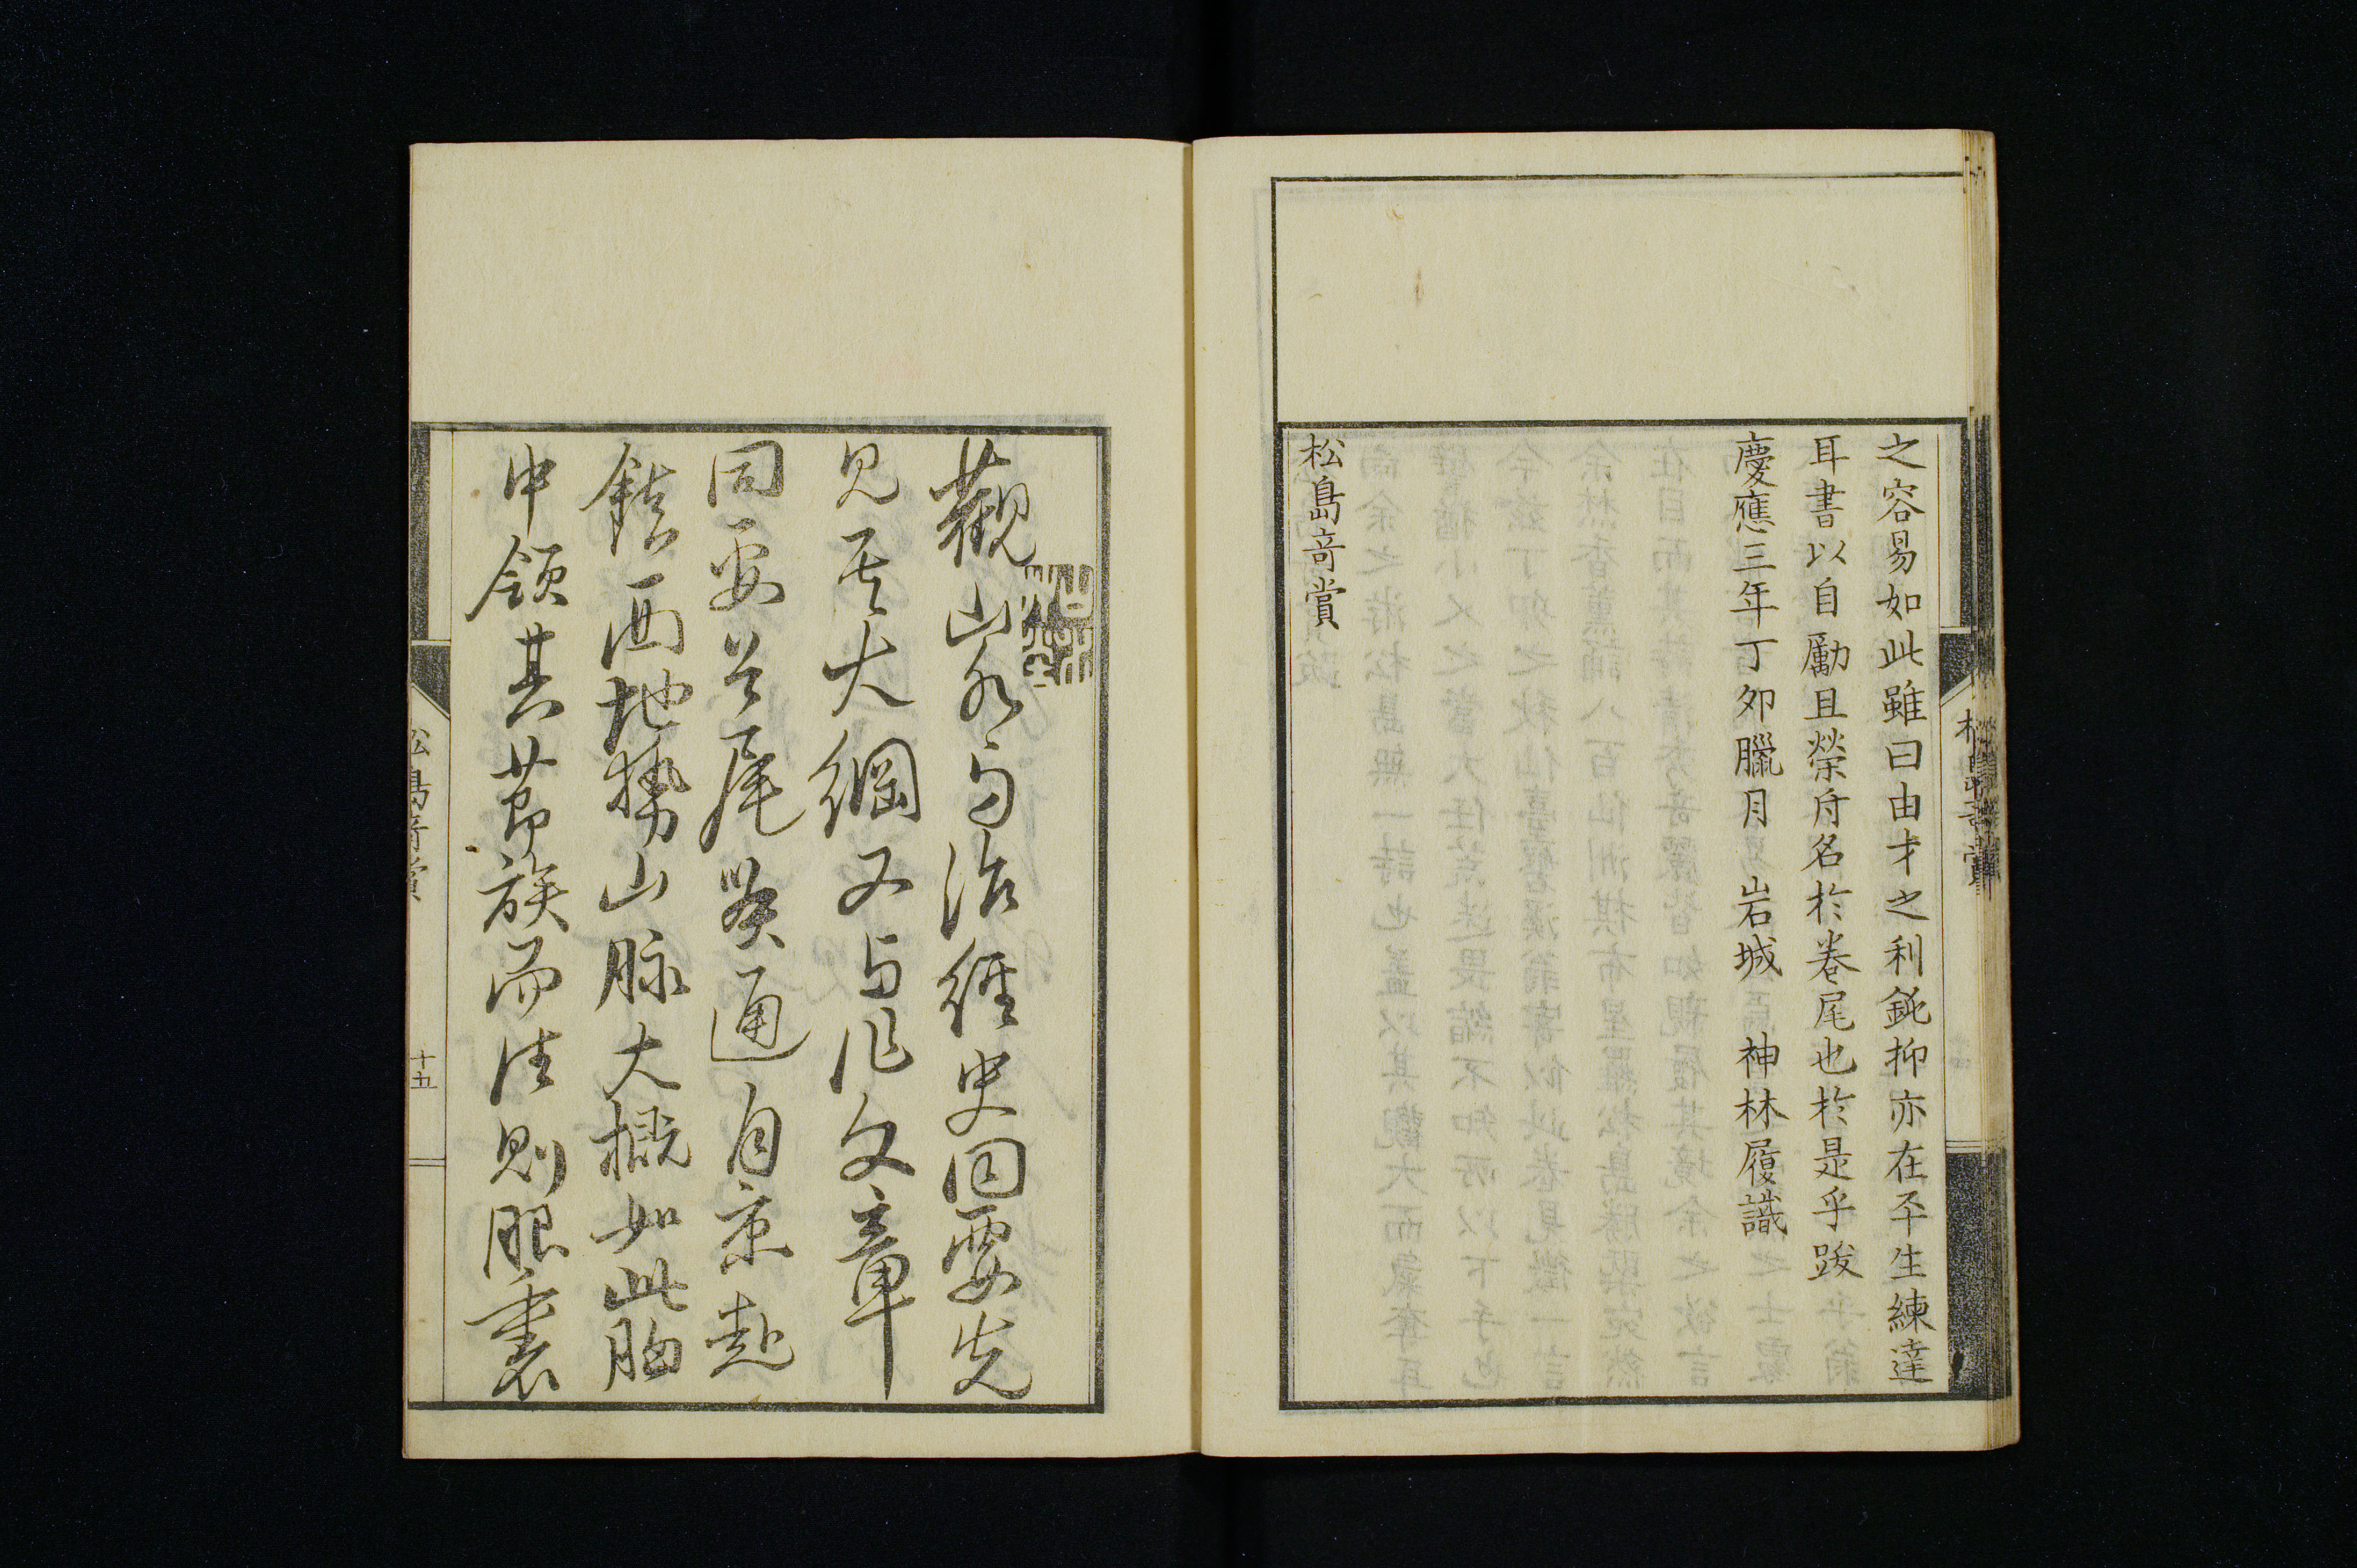 之容易如此雖曰由才之利鈍抑亦在平生練達
耳書以自勵且榮府名於卷尾也於是乎跋
慶應三年丁卯臘月 岩城 神林履識
松島奇賞
觀山水与治經史同要先
見其大綱又与作文章
同要首尾貫通自京赴
鎮西地勢山脉大概如此胸
中領其節族而往則眼裏
松島奇賞
十五